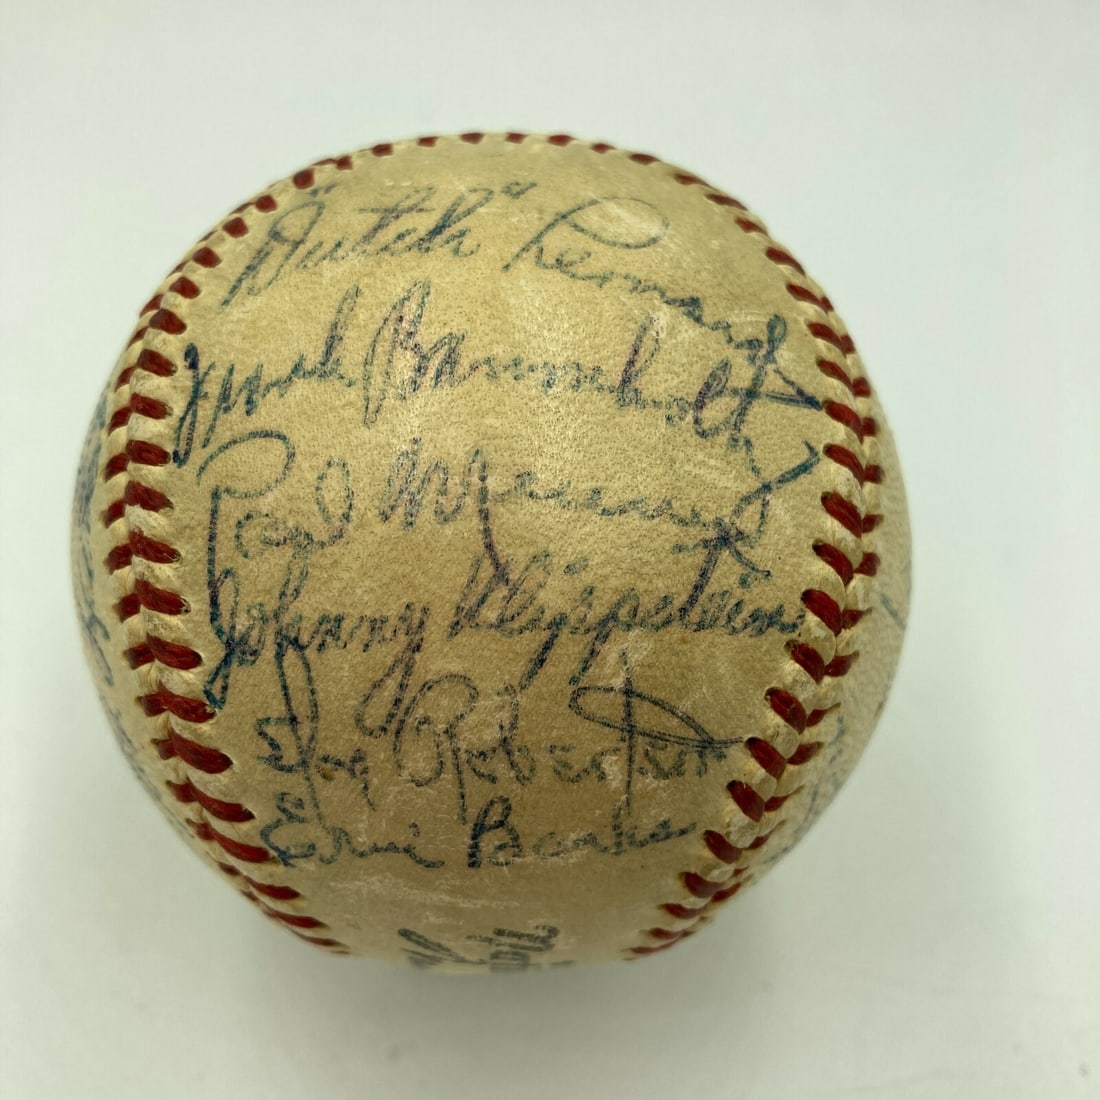 "Dutch" Leonard
Frank Baumholtz
Paul Minner
Johnny Klippstein
Joe Robertson
Ernie Banks